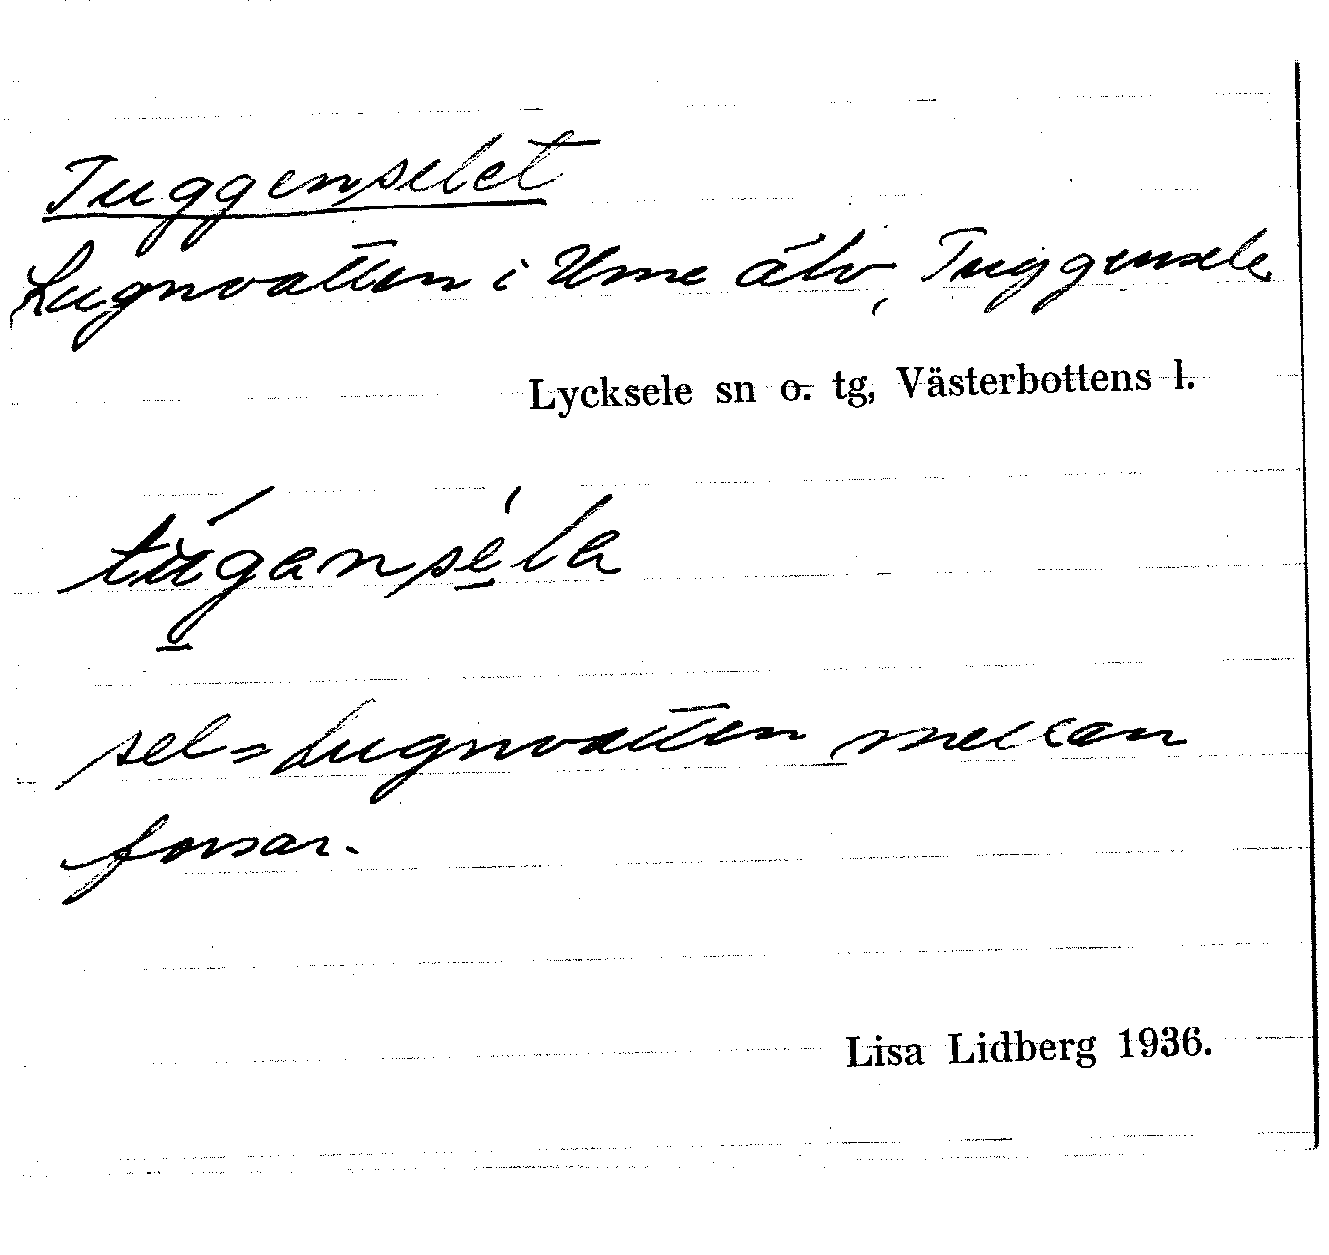 Tuggenselet
Lugnvatten i Ume älv, Tuggensele
Lycksele sn o. tg, Västerbottens l.
sel = Lugnvatten mellan
forsar.
Lisa Lidberg 1936.